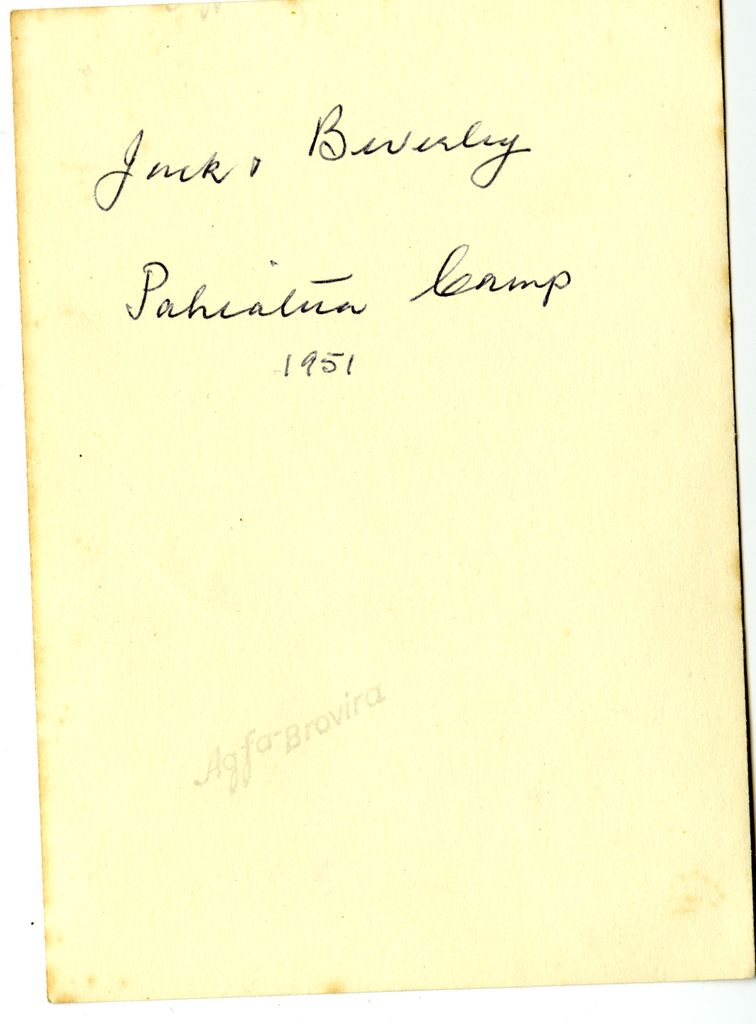 Jack & Beverley
Pahiatua Camp
1951
Agfa-Brovira